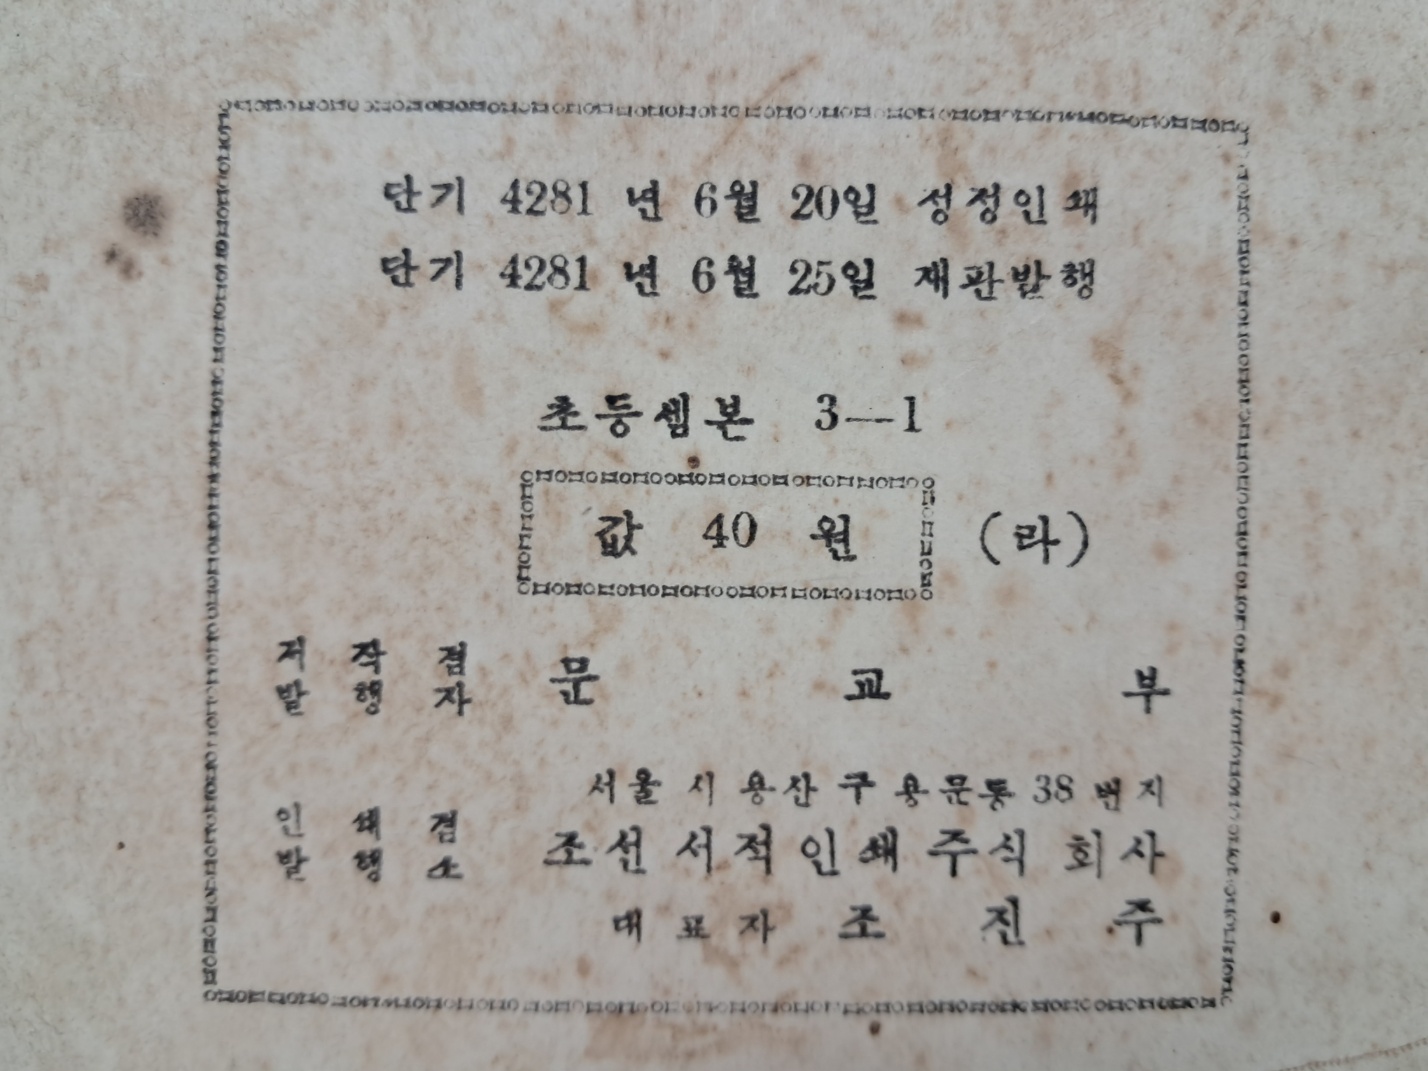 단기 4281 년 6월 20일 성정인쇄
단기 4281 년 6월 25일 재판발행
초등셈본 3—1
값 40 원 (라)
저작겸
발행자 문교부
서울시 용산구 용문동 38 번지
인쇄겸
발행소 조선서적인쇄주식회사
대표자 조진주